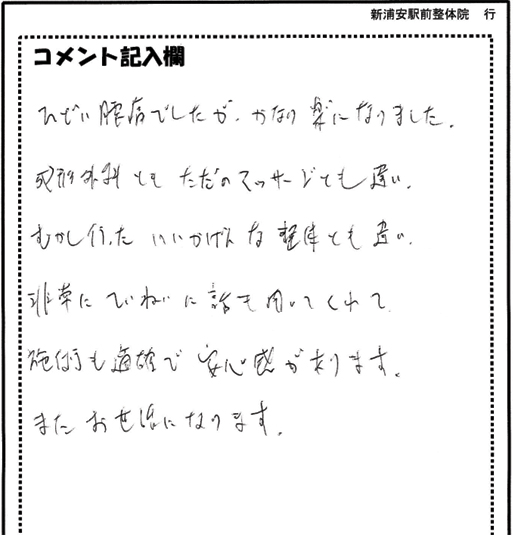 新浦安駅前整体院 行
コメント記入欄
ひどい腰痛でしたが、かなり楽になりました。
整形外科とも ただのマッサージとも違い、
むかし行った いいかげんな整体とも違い、
非常に ていねいに話も聞いてくれて
施術も適確で 安心感があります。
また お世話になります。